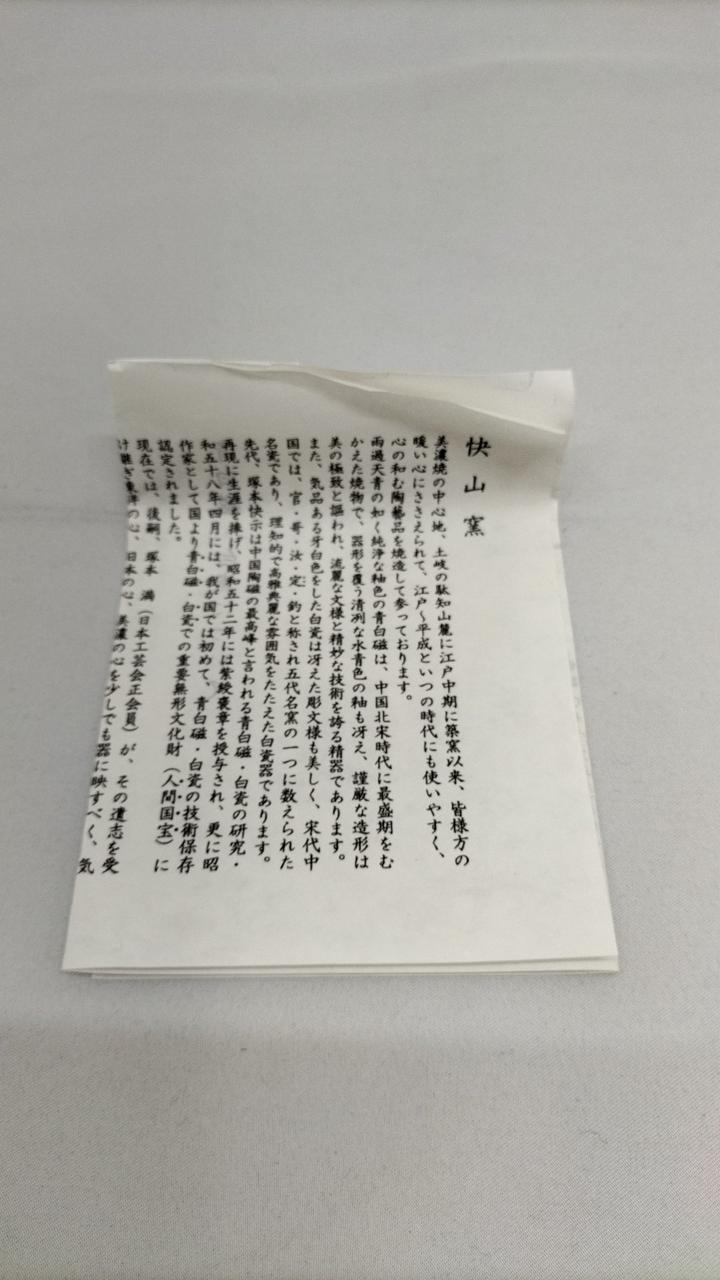 快山窯
美濃焼の中心地、土岐の駄知山麓に江戸中期に築窯以来、皆様方の
暖い心にささえられて、江戸〜平成といつの時代にも使いやすく、
心の和む陶藝品を焼造して参っております。
雨過天青の如く純淨な釉色の青白磁は、中国北宋時代に最盛期をむ
かえた焼物で、器形を覆う清冽な水青色の釉も冴え、謹厳な造形は
美の極致と謳われ、流麗な文様と精妙な技術を誇る精器であります。
また、気品ある牙白色をした白瓷は冴えた彫文様も美しく、宋代中
国では、官・哥・汝・定・鈞と称され五代名窯の一つに数えられた
名瓷であり、理知的で高雅典麗な雰囲気をたたえた白瓷器であります。
先代、塚本快示は中国陶磁の最高峰と言われる青白磁・白瓷の研究・
再現に生涯を捧げ、昭和五十二年には紫綬褒章を授与され、更に昭
和五十八年四月には、我が国では初めて、青白磁・白瓷の技術保存
作家として国より青白磁・白瓷での重要無形文化財（人間国宝）に
認定されました。
現在では、後嗣、塚本 満（日本工芸会正会員）が、その遺志を受
け継ぎ東洋の心、日本の心、美濃の心を少しでも器に映すべく、気